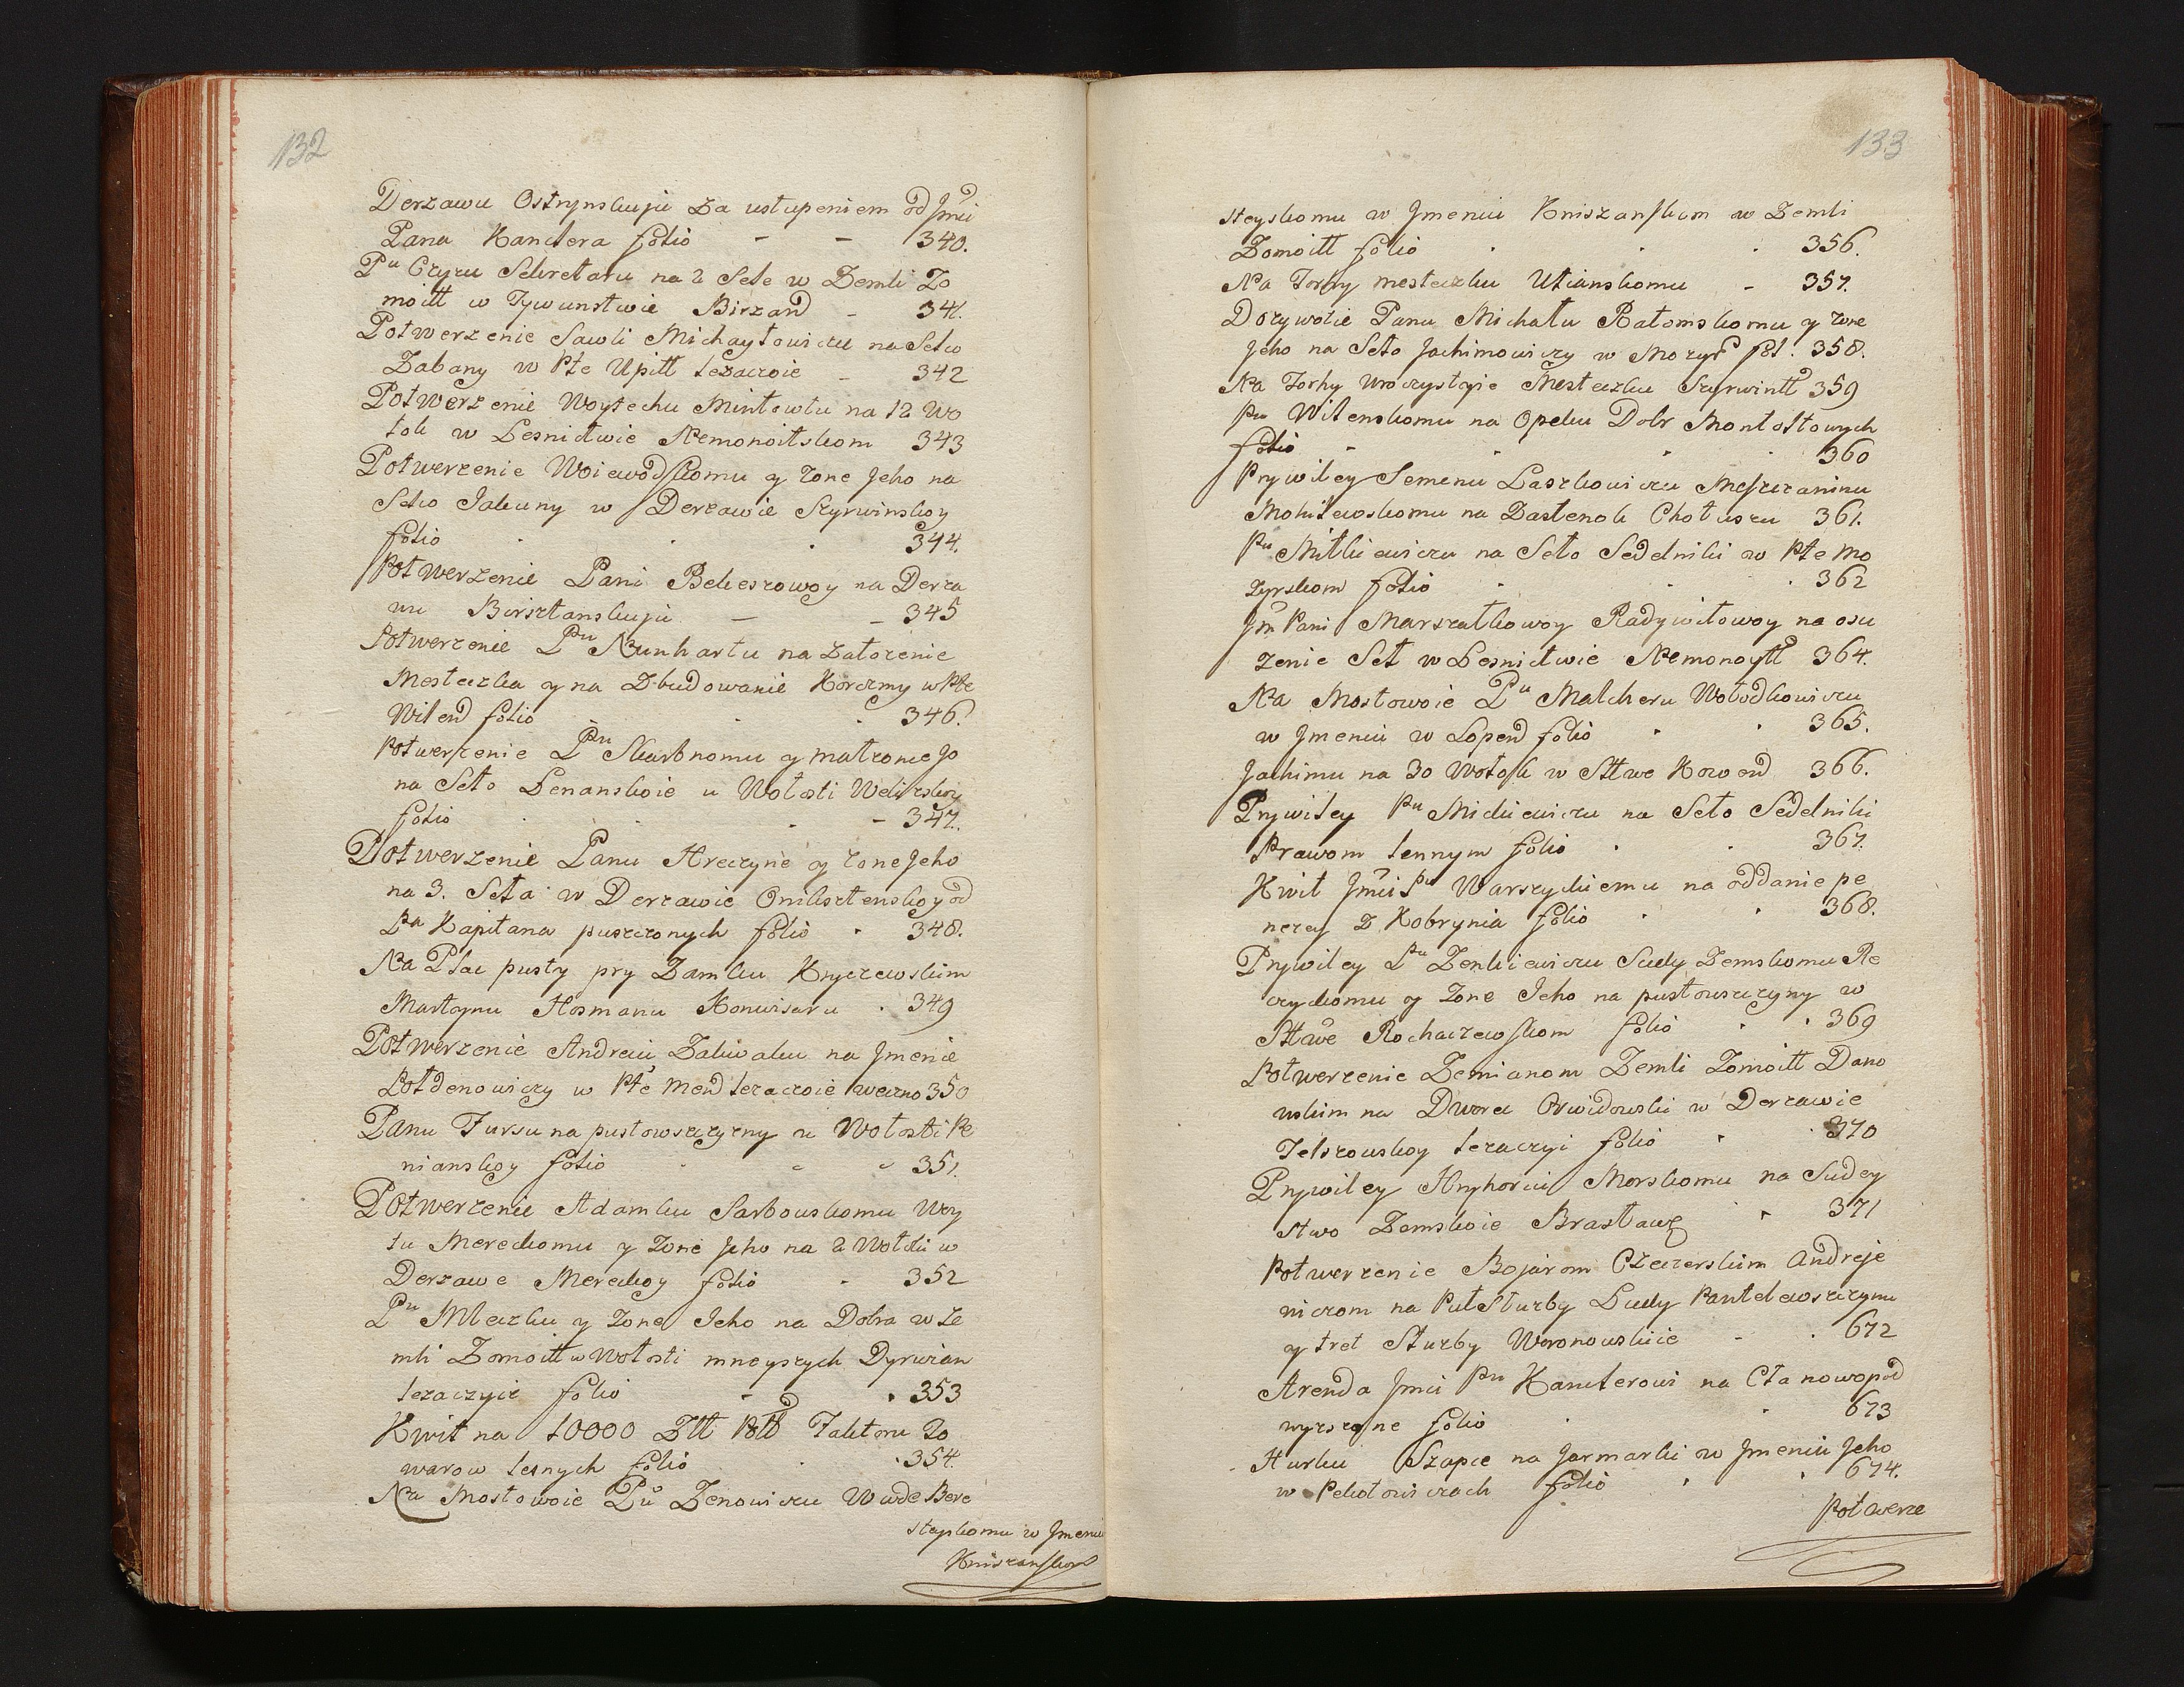 132
Derzawu Ostrynskuju za ustupeniem od Jmci
Pana Kanclera folio - - 340.
Pu Czyzu Sekretaru na 2 Sele w Zemli Żo
moitt w Tywunstwie Birżand - 341.
Potwerzenie Sawli Michayłowiczu na Selco
Zabany w Pte Upitt lezaczoie - 342
Potwerzenie Woytechu Mintowtu na 12 Wo
lok w Lesnictwie Nemonoitskom 343
Potwerzenie Woiewodskomu y żone Jeho na
Selco Jakuny w Derzawie Szyrwinskoy
folio . . . 344.
Potwerzenie Pani Bekeszowoy na Derza
wu Birsztanskuju - - 345
Potwerzenie Pnu Nunhartu na założenie
Mesteczka y na Zbudowanie Korczmy w Pte
Wilend folio . . . 346.
Potwerzenie Pnu Skarbnomu y małżonce Jo
na Seło Lenanskoie u Wołosti Welizskoy
folio . . . - 347.
Potwerzenie Panu Hreczyne y żone Jeho
na 3. Seła w Derzawie Oniksztenskoy od
Pa Kapitana puszczonych folio . 348.
Na Plac pusty pry Zamku Kryczewskim
Martynu Hosmanu Konwisaru . 349
Potwerzenie Andreiu Zakiwaku na Jmenie
Połdenowiczy w Pte Mend lezaczoie weczno 350
Panu Fursu na pustowszczyzny u Wołosti Pe
nianskoy folio . . . 351.
Potwerzenie Adamku Sarbowskomu Woy
tu Mereckomu y Żonie Jeho na 2 Wołoki w
Derzawe Mereckoy folio . 352
Pnu Mleczku y Żone Jeho na Dobra w Ze
mli Żomoitt w Wołosti mneyszych Dyrwian
lezaczyie folio - . 353
Kwit na 10000 Złł Połł Faktoru To
warow lesnych folio . . 354.
Na Mostowoie Pu Zenowiczu Wwde Bere
steyskomu w Jmeniu
Kniszanskom
133
steyskomu w Jmeniu Kniszanskom w Zemli
Żomoitt folio . . . 356.
Na Torhy mesteczku Utianskomu - 357.
Dożywotie Panu Michału Ratomskomu y żone
Jeho na Seło Jachimowiczy w Mozyr fol. 358.
Na Torhy uroczystyie Mesteczku Szyrwintt 359
Pu Wilenskomu na Opeku Dobr Montołtowych
folio . . . . 360
Prywiley Semenu Laszkowiczu Meszczaninu
Mohilewskomu na Zastenok Chotuszu 361.
Pu Mitkiewiczu na Seło Sedelniki w Pte Mo
zyrskom folio . . . 362
Jm Pani Marszałkowoy Radywiłowoy na osa
żenie Seł w Lesnictwie Nemonoytt 364.
Na Mostowoie Pu Malcheru Wołodkowiczu
w Jmeniu w Lopend folio . . 365.
Jachimu na 30 Wołok w Sttwe Kowend 366.
Prywiley Pu Mickiewiczu na Seło Sedelniki
Prawom lennym folio . . 367.
Kwit Jmci Pu Warszyckiemu na oddanie pe
nezey z Kobrynia folio . . 368.
Prywiley Pu Zenkiewiczu Sudy Zemskomu Re
czyckomu y Żone Jeho na pustowszczyny w
Sttwe Rochaczewskom folio . . 369
Potwerzenie Zemianom Zemli Żomoitt Dano
wskim na Dworec Orwidowski w Derzawie
Telszowskoy lezaczyi folio . . 370
Prywiley Hryhoriu Morskomu na Sudey
stwo Zemskoie Brasław . 371
Potwerzenie Bojarom Czeczerskim Andreje
wiczom na Puł Służby Ludy Pantelewszczynu
y tret Służby Woronowskiie - . 672
Arenda Jmci Pnu Kanclerowi na Cła nowopod
wyzszone folio . . 673
Hurku Szapce na Jarmarki w Jmeniu Jeho
w Pekołowiczach folio . . 674.
Potwerze